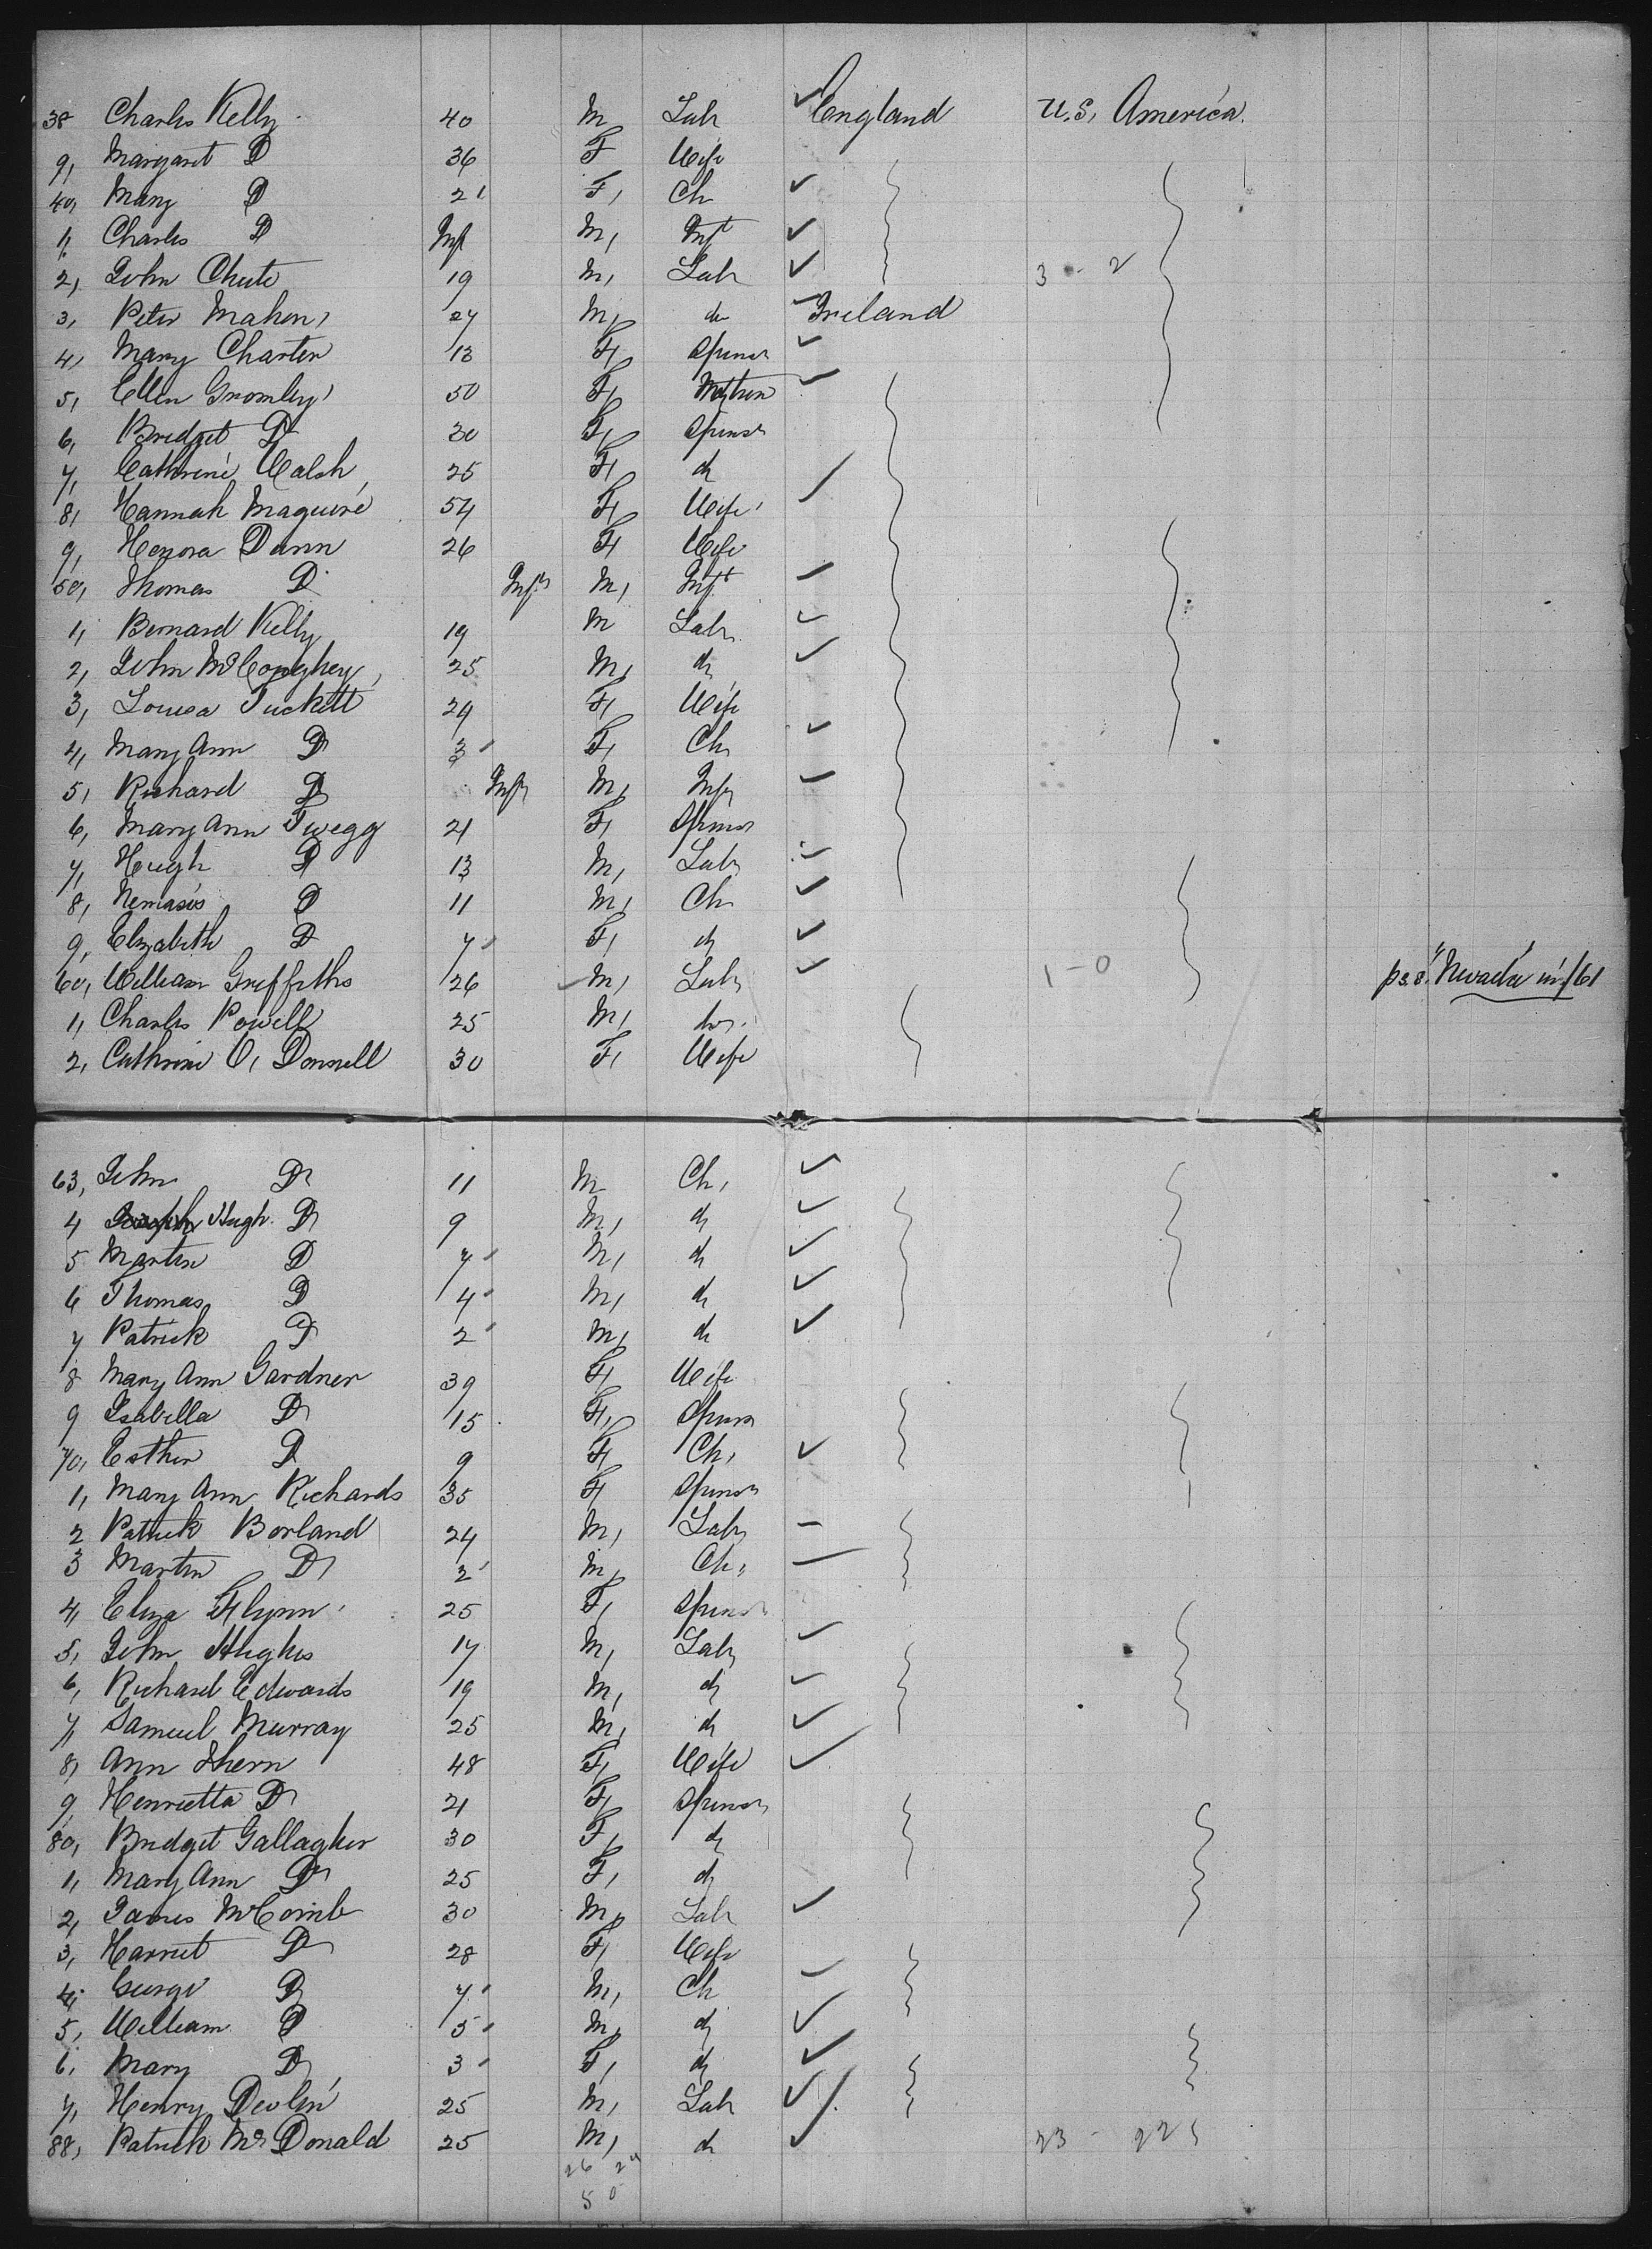 38 Charles Kelly 40 M Labr England U.S. America
9, Margaret Do 36 F Wife
40, Mary Do 2 F, Ch
1, Charles Do Inft M, Inft
2, John Chute 19 M, Labr 3 - 2
3, Peter Mahon 27 M, do Ireland
4, Mary Charter 18 F, Spinsr
5, Ellen Gromley 50 F, Matron
6, Bridget Do 30 F, Spinsr
7, Cathrine Walsh 25 F, do
8, Hannah Maguire 54 F, Wife
9, Honora Dunn 26 F, Wife
50, Thomas Do Inft M, Inft
1, Bernard Kelly 19 M Labr
2, John McConghey 25 M, do
3, Louisa Tuckett 24 F, Wife
4, Mary Ann Do 3 F, Ch,
5, Richard Do Inft M, Inft
6, Mary Ann Twegg 21 F, Spinsr
7, Hugh Do 13 M, Labr
8, Nemasis Do 11 M, Ch
9, Elizabeth Do 7 F, do
60, William Griffiths 26 M, Labr 1 - 0 p s.s. "Nevada" in /61
1, Charles Powell 25 M, do
2, Cathrine O, Donnell 30 F, Wife
63, John Do 11 M Ch,
4 Hugh Do 9 M, do
5 Martin Do 7 M, do
6 Thomas Do 4 M, do
7 Patrick Do 2 M, do
8 Mary Ann Gardner 39 F, Wife
9 Isabella Do 15 F, Spinsr
70, Esther Do 9 F, Ch,
1, Mary Ann Richards 35 F Spinsr
2 Patrick Borland 24 M, Labr
3 Martin Do 2 M, Ch,
4, Eliza Flynn 25 F, Spinsr
5, John Hughes 17 M, Labr
6, Richard Edwards 19 M, do
7, Samuel Murray 25 M, do
8, Ann Ahern 48 F, Wife
9, Henrietta Do 21 F, Spinsr
80, Bridget Gallagher 30 F, do
1, Mary Ann Do 25 F, do
2, James McComb 30 M, Labr
3, Harriet Do 28 F, Wife
4, George Do 7 M, Ch
5, William Do 5 M, do
6, Mary Do 3 F, do
7, Henry Devlin 25 M, Labr
88, Patrick McDonald 25 M, do 23 - 22
26 24
50